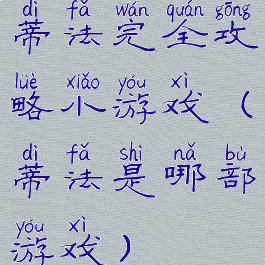 dì fǎ wán quán gōng
蒂法完全攻
lüè xiǎo yóu xì
略小游戏（
dì fǎ shì nǎ bù
蒂法是哪部
yóu xì
游戏）